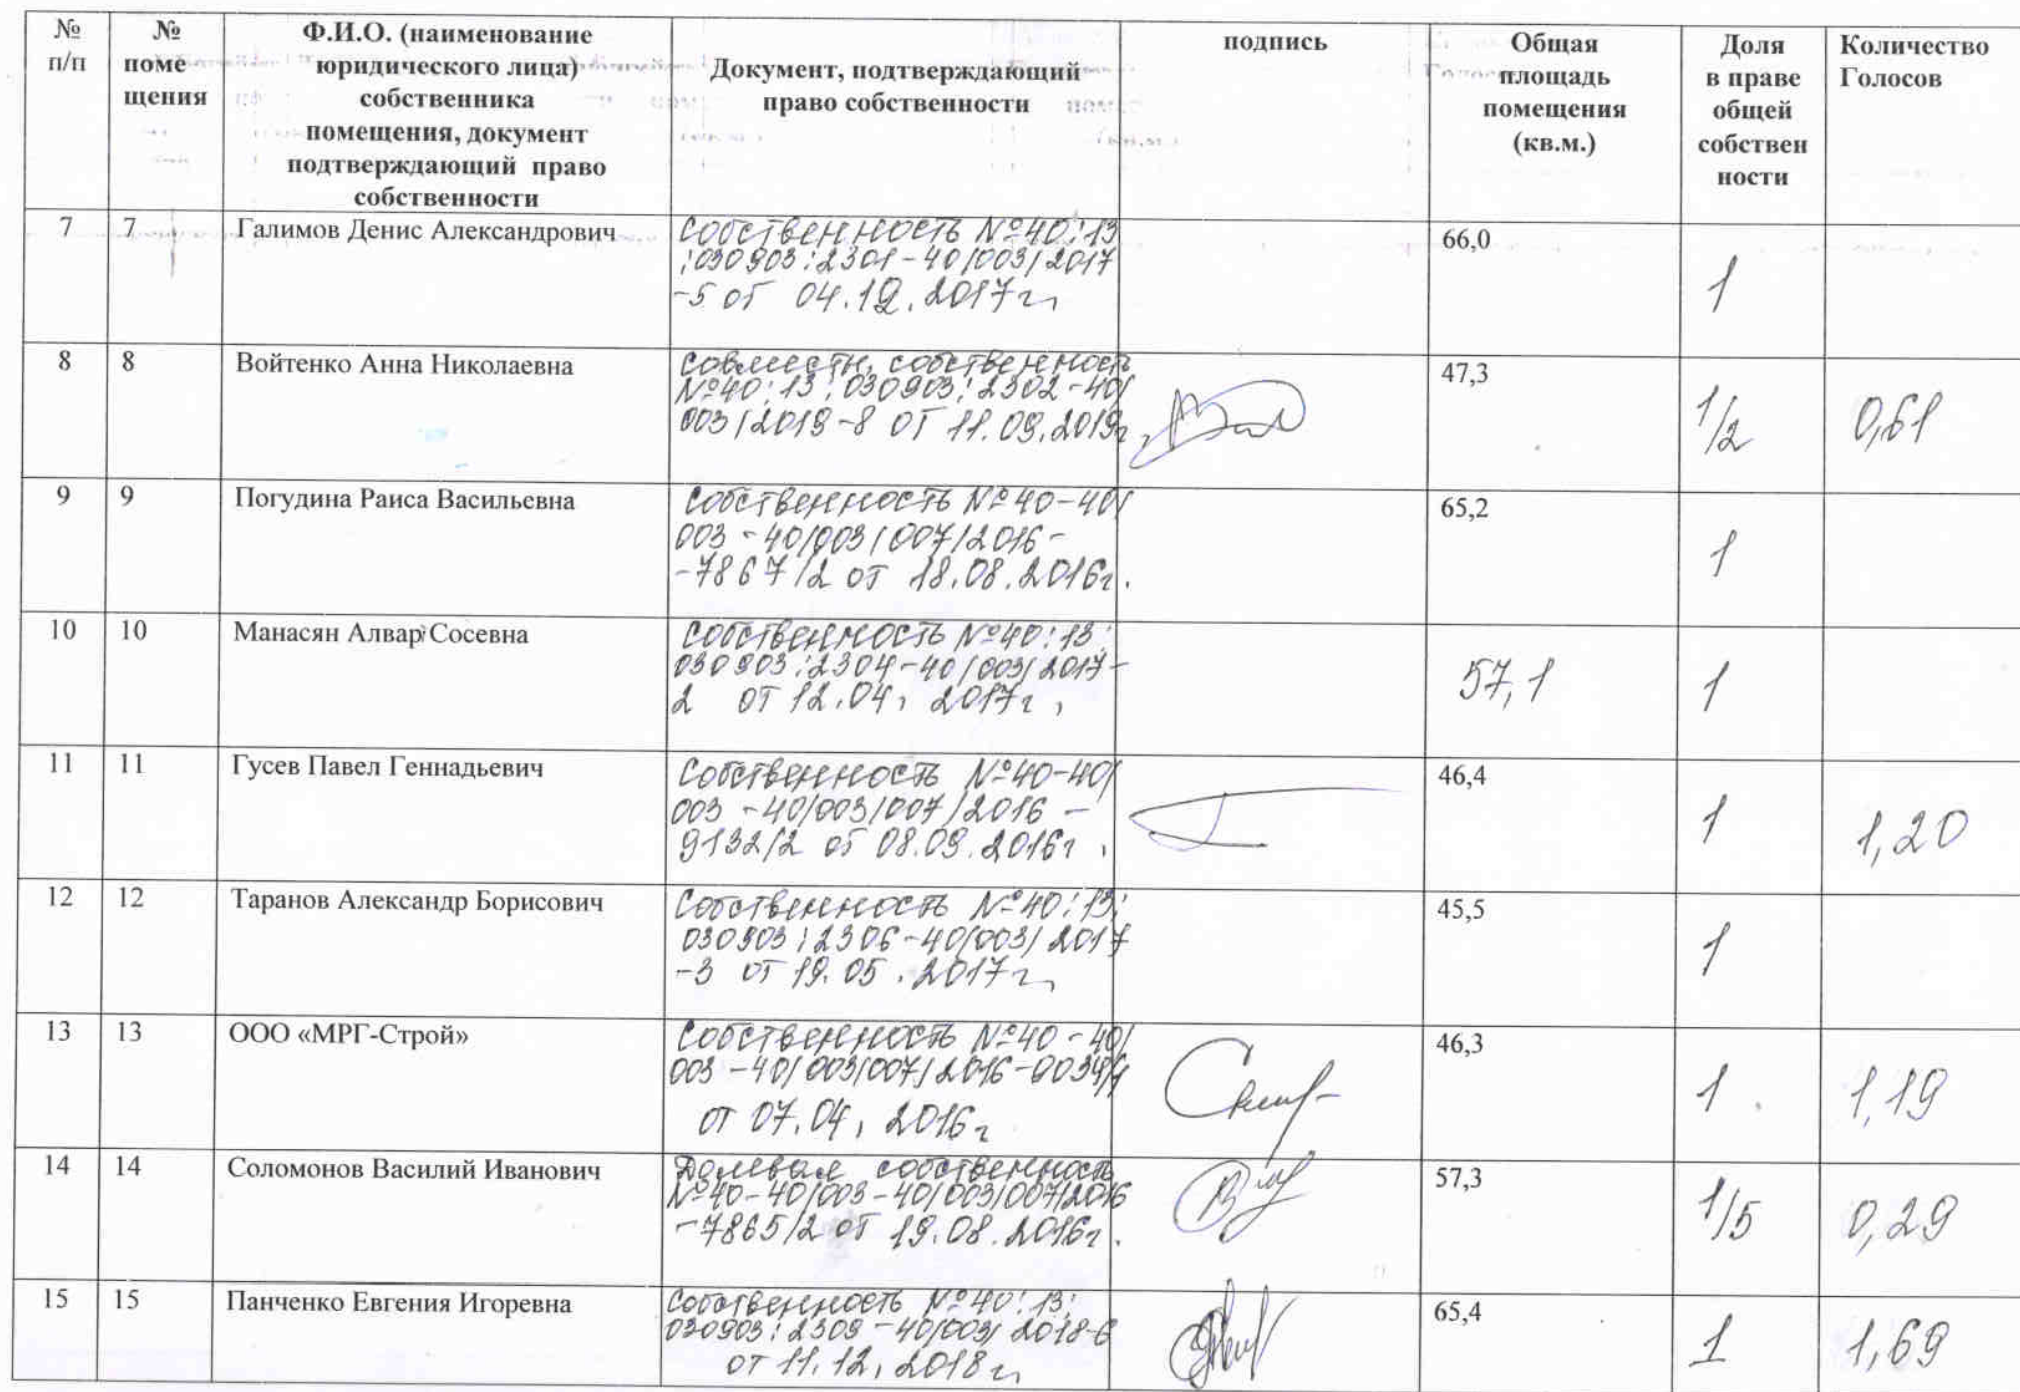 № п/п
№ поме щения
Ф.И.О. (наименование
юридического лица)
собственника
помещения, документ
подтверждающий право
собственности
Документ, подтверждающий
право собственности
подпись
Общая
площадь
помещения
(кв.м.)
Доля
в праве
общей
собствен
ности
Количество
Голосов
7 7 Галимов Денис Александрович
Собственность №40:13
:030903:2301-40/003/2017
-5 от 04.12.2017г.
66,0
1
8 8 Войтенко Анна Николаевна
Совместн. собственность
№40:13:030903:2302-40/
003/2019-8 от 11.09.2019г.
47,3
1/2
0,61
9 9 Погудина Раиса Васильевна
Собственность №40-40/
003-40/003/007/2016-
-7867/2 от 18.08.2016г.
65,2
1
10 10 Манасян Алвар Сосевна
Собственность №40:13:
030903:2304-40/003/2017-
2 от 12.04. 2017г.
57,1
1
11 11 Гусев Павел Геннадьевич
Собственность №40-40/
003-40/003/007/2016-
9132/2 от 08.09.2016г.
46,4
1
1,20
12 12 Таранов Александр Борисович
Собственность №40:13:
030903:2306-40/003/2017
-3 от 19.05.2017г.
45,5
1
13 13 ООО «МРГ-Строй»
Собственность №40-40/
003-40/003/007/2016-
от 07.04. 2016г
46,3
1
1,19
14 14 Соломонов Василий Иванович
Долевая собственность
№40-40/003-40/003/007/2016
-7865/2 от 19.08.2016г.
57,3
1/5
0,29
15 15 Панченко Евгения Игоревна
Собственность №40:13:
030903:2309-40/003/2018-6
от 11.12.2018г.
65,4
1
1,69